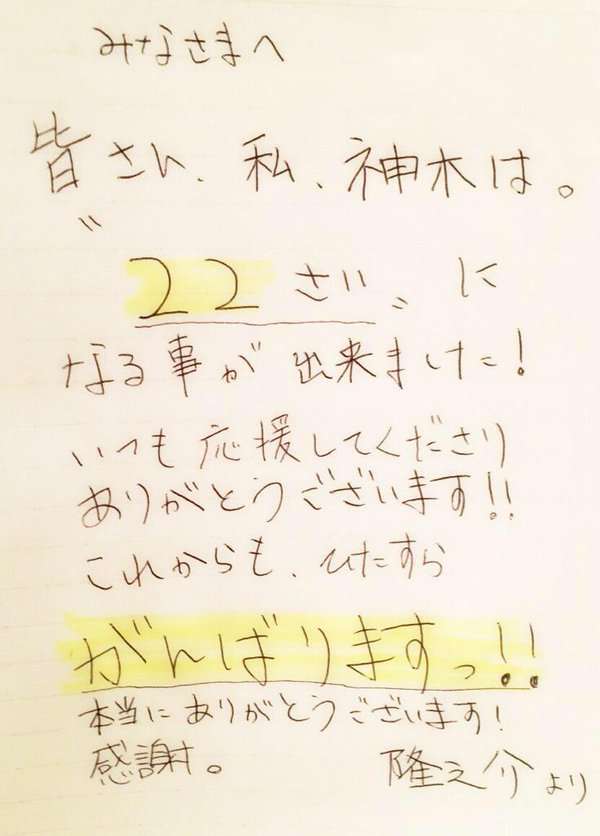 みなさまへ
皆さん、私、神木は。
〝22さい〟に
なる事が出来ました!
いつも応援してくださり
ありがとうございます!!
これからも、ひたすら
がんばりますっ!!
本当にありがとうございます!
感謝。 隆之介より